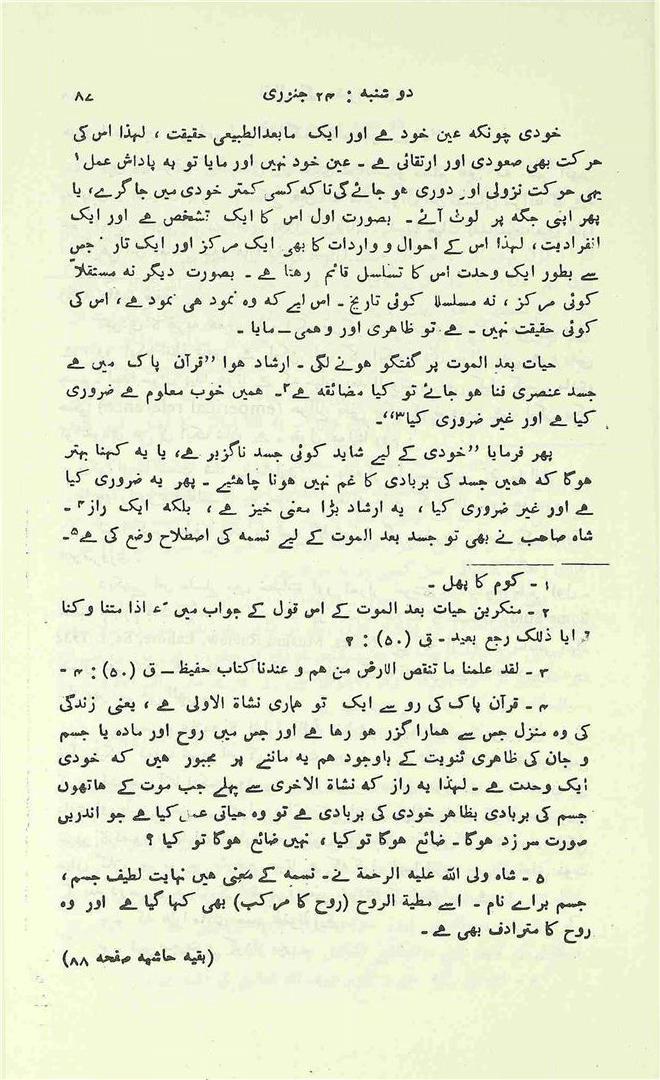 دو شنبہ : ۲۴ جنوری ۸۷
خودی چونکہ عین خود ہے اور ایک مابعدالطبیعی حقیقت ، لہذا اس کی
حرکت بھی صعودی اور ارتقائی ہے ۔ عین خود نہیں اور مایا تو بہ پاداش عمل۱
یہی حرکت نزولی اور دوری ہو جائے گی تاکہ کسی کمتر خودی میں جا گرے، یا
پھر اپنی جگہ پر لوٹ آئے ۔ بصورت اول اس کا ایک تشخص ہے اور ایک
انفرادیت، لہذا اس کے احوال و واردات کا بھی ایک مرکز اور ایک تار جس
سے بطور ایک وحدت اس کا تسلسل قائم رہتا ہے ۔ بصورت دیگر نہ مستقلاً
کوئی مرکز ، نہ مسلسلا کوئی تاریخ ۔ اس لیے کہ وہ نمود ہی نمود ہے، اس کی
کوئی حقیقت نہیں ۔ ہے تو ظاہری اور وہمی ــ مایا ۔
حیات بعد الموت پر گفتگو ہونے لگی ۔ ارشاد ہوا ”قرآن پاک میں ہے
جسد عنصری فنا ہو جائے تو کیا مضائقہ ہے۲۔ ہمیں خوب معلوم ہے ضروری
کیا ہے اور غیر ضروری کیا۳“۔
پھر فرمایا ”خودی کے لیے شاید کوئی جسد ناگزیر ہے، یا یہ کہنا بہتر
ہوگا کہ ہمیں جسد کی بربادی کا غم نہیں ہونا چاہئیے ۔ پھر یہ ضروری کیا
ہے اور غیر ضروری کیا ، یہ ارشاد بڑا معنی خیز ہے ، بلکہ ایک راز۴ ۔
شاہ صاحب نے بھی تو جسد بعد الموت کے لیے نسمہ کی اصطلاح وضع کی ہے۵۔
۱ ۔ کرم کا پھل ۔
۲ ۔ منکرین حیات بعد الموت کے اس قول کے جواب میں ء اذا متنا و کنا
ذلک رجع بعید ۔ ق (۵۰) : ۳
۳ ۔ لقد علمنا ما تنقص الارض من ہم و عندنا کتاب حفیظ ــ ق (۵۰) : ۴ ۔
۴ ۔ قرآن پاک کی رو سے ایک تو ہماری نشاة الاولی ہے ، یعنی زندگی
کی وہ منزل جس سے ہمارا گزر ہو رہا ہے اور جس میں روح اور مادہ یا جسم
و جان کی ظاہری ثنویت کے باوجود ہم یہ ماننے پر مجبور ہیں کہ خودی
ایک وحدت ہے ۔ لہذا یہ راز کہ نشاة الاخری سے پہلے جب موت کے ہاتھوں
جسم کی بربادی بظاہر خودی کی بربادی ہے تو وہ حیاتی عمل کیا ہے جو اندریں
صورت سر زد ہوگا ۔ ضائع ہوگا تو کیا ، نہیں ضائع ہوگا تو کیا ؟
۵ ۔ شاہ ولی اللہ علیہ الرحمة نے ۔ نسمہ کے معنی ہیں نہایت لطیف جسم ،
جسم براے نام ۔ اسے مطیة الروح (روح کا مرکب) بھی کہا گیا ہے اور وہ
روح کا مترادف بھی ہے ۔
(بقیہ حاشیہ صفحہ ۸۸)